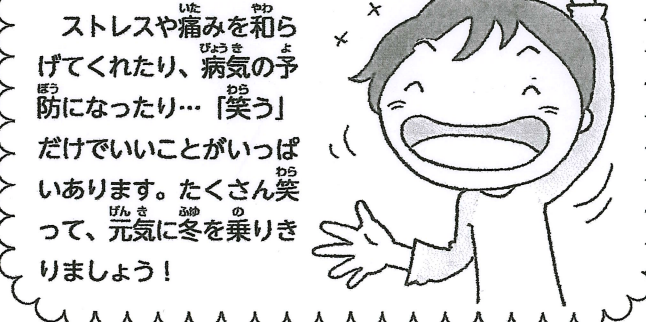 ストレスや痛みを和ら
げてくれたり、病気の予
防になったり…「笑う」
だけでいいことがいっぱ
いあります。たくさん笑
って、元気に冬を乗りき
りましょう!